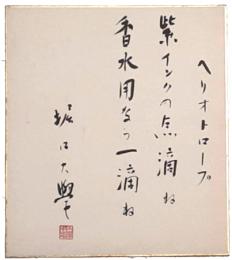 ヘリオトロープ
紫インクの点滴ね
香水用なら一滴ね
堀口大學